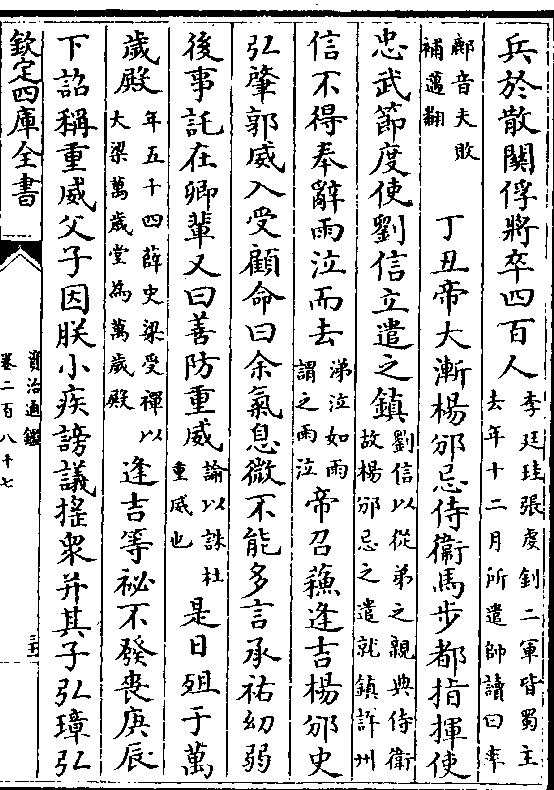 兵於散關俘將卒四百人李廷珪張虔釗二軍皆蜀主去年十二月所遣帥讀曰率
鄜音夫敗補邁翻丁丑帝大漸楊邠忌侍衞馬步都指揮使
忠武節度使劉信立遣之鎮劉信以從弟之親典侍衞故楊邠忌之遣就鎮許州
信不得奉辭雨泣而去涕泣如雨謂之雨泣帝召蘓逢吉楊邠史
弘肇郭威入受顧命曰余氣息微不能多言承祐幼弱
後事託在卿輩又曰善防重威諭以誅杜重威也是日殂于萬
歲殿年五十四薛史梁受禪以大梁萬歲堂為萬歲殿逢吉等祕不發喪庚辰
下詔稱重威父子因朕小疾謗議揺衆并其子弘璋弘
欽定四庫全書
資治通鑑
卷二百八十七